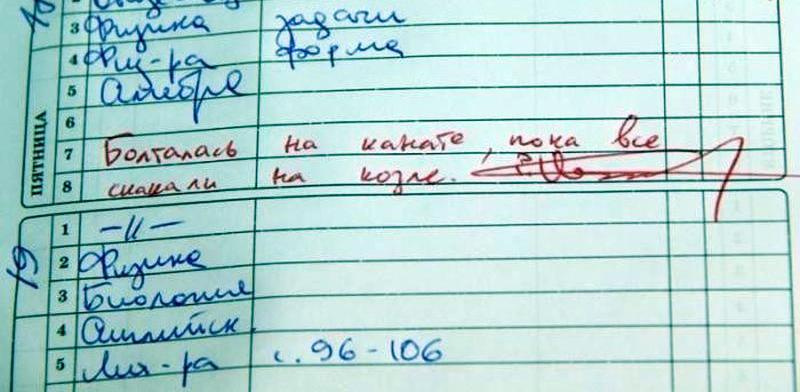 3 Физика задачи
4 Физ-ра форма
5 Алгебра
6
ПЯТНИЦА
7 Болталась на канате, пока все
8 скакали на козле.
19
1 –//–
2 Физика
3 Биология
4 Английск.
5 Лит-ра с. 96-106